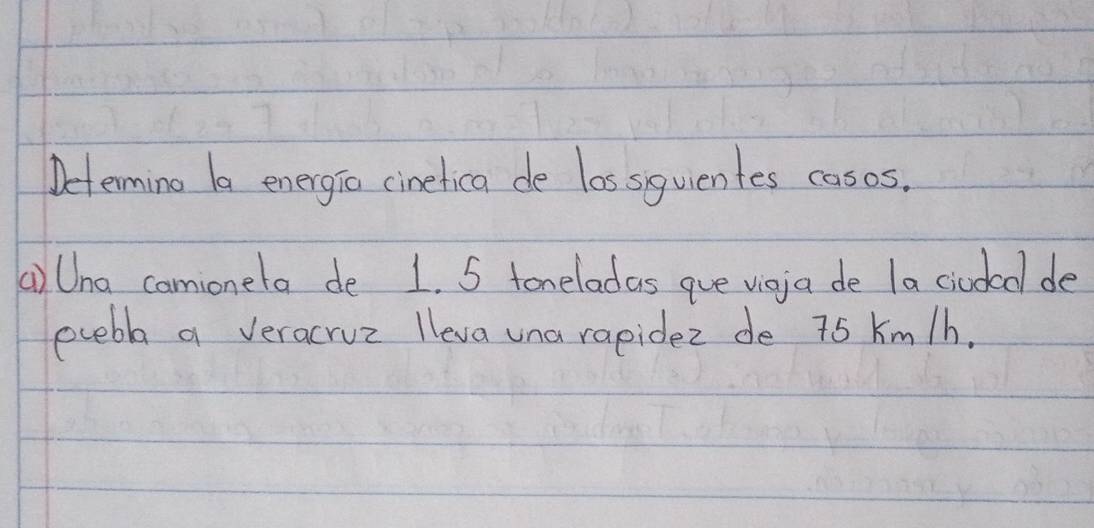 Determina la energía cinetica de los siguientes casos.
a) Una camioneta de 1.5 toneladas que viaja de la ciudad de
puebla a Veracruz lleva una rapidez de 75 Km/h.